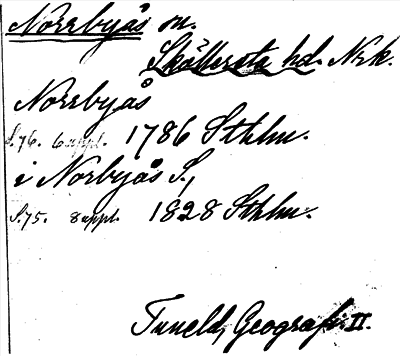 Norrbyås sn.
Sköllersta hd. Nrk.
Norrbyås
S.76. 6 uppl. 1786 Sthlm.
i Norbyås S.,
S.75. 8 uppl. 1828 Sthlm.
Tuneld, Geografi II.